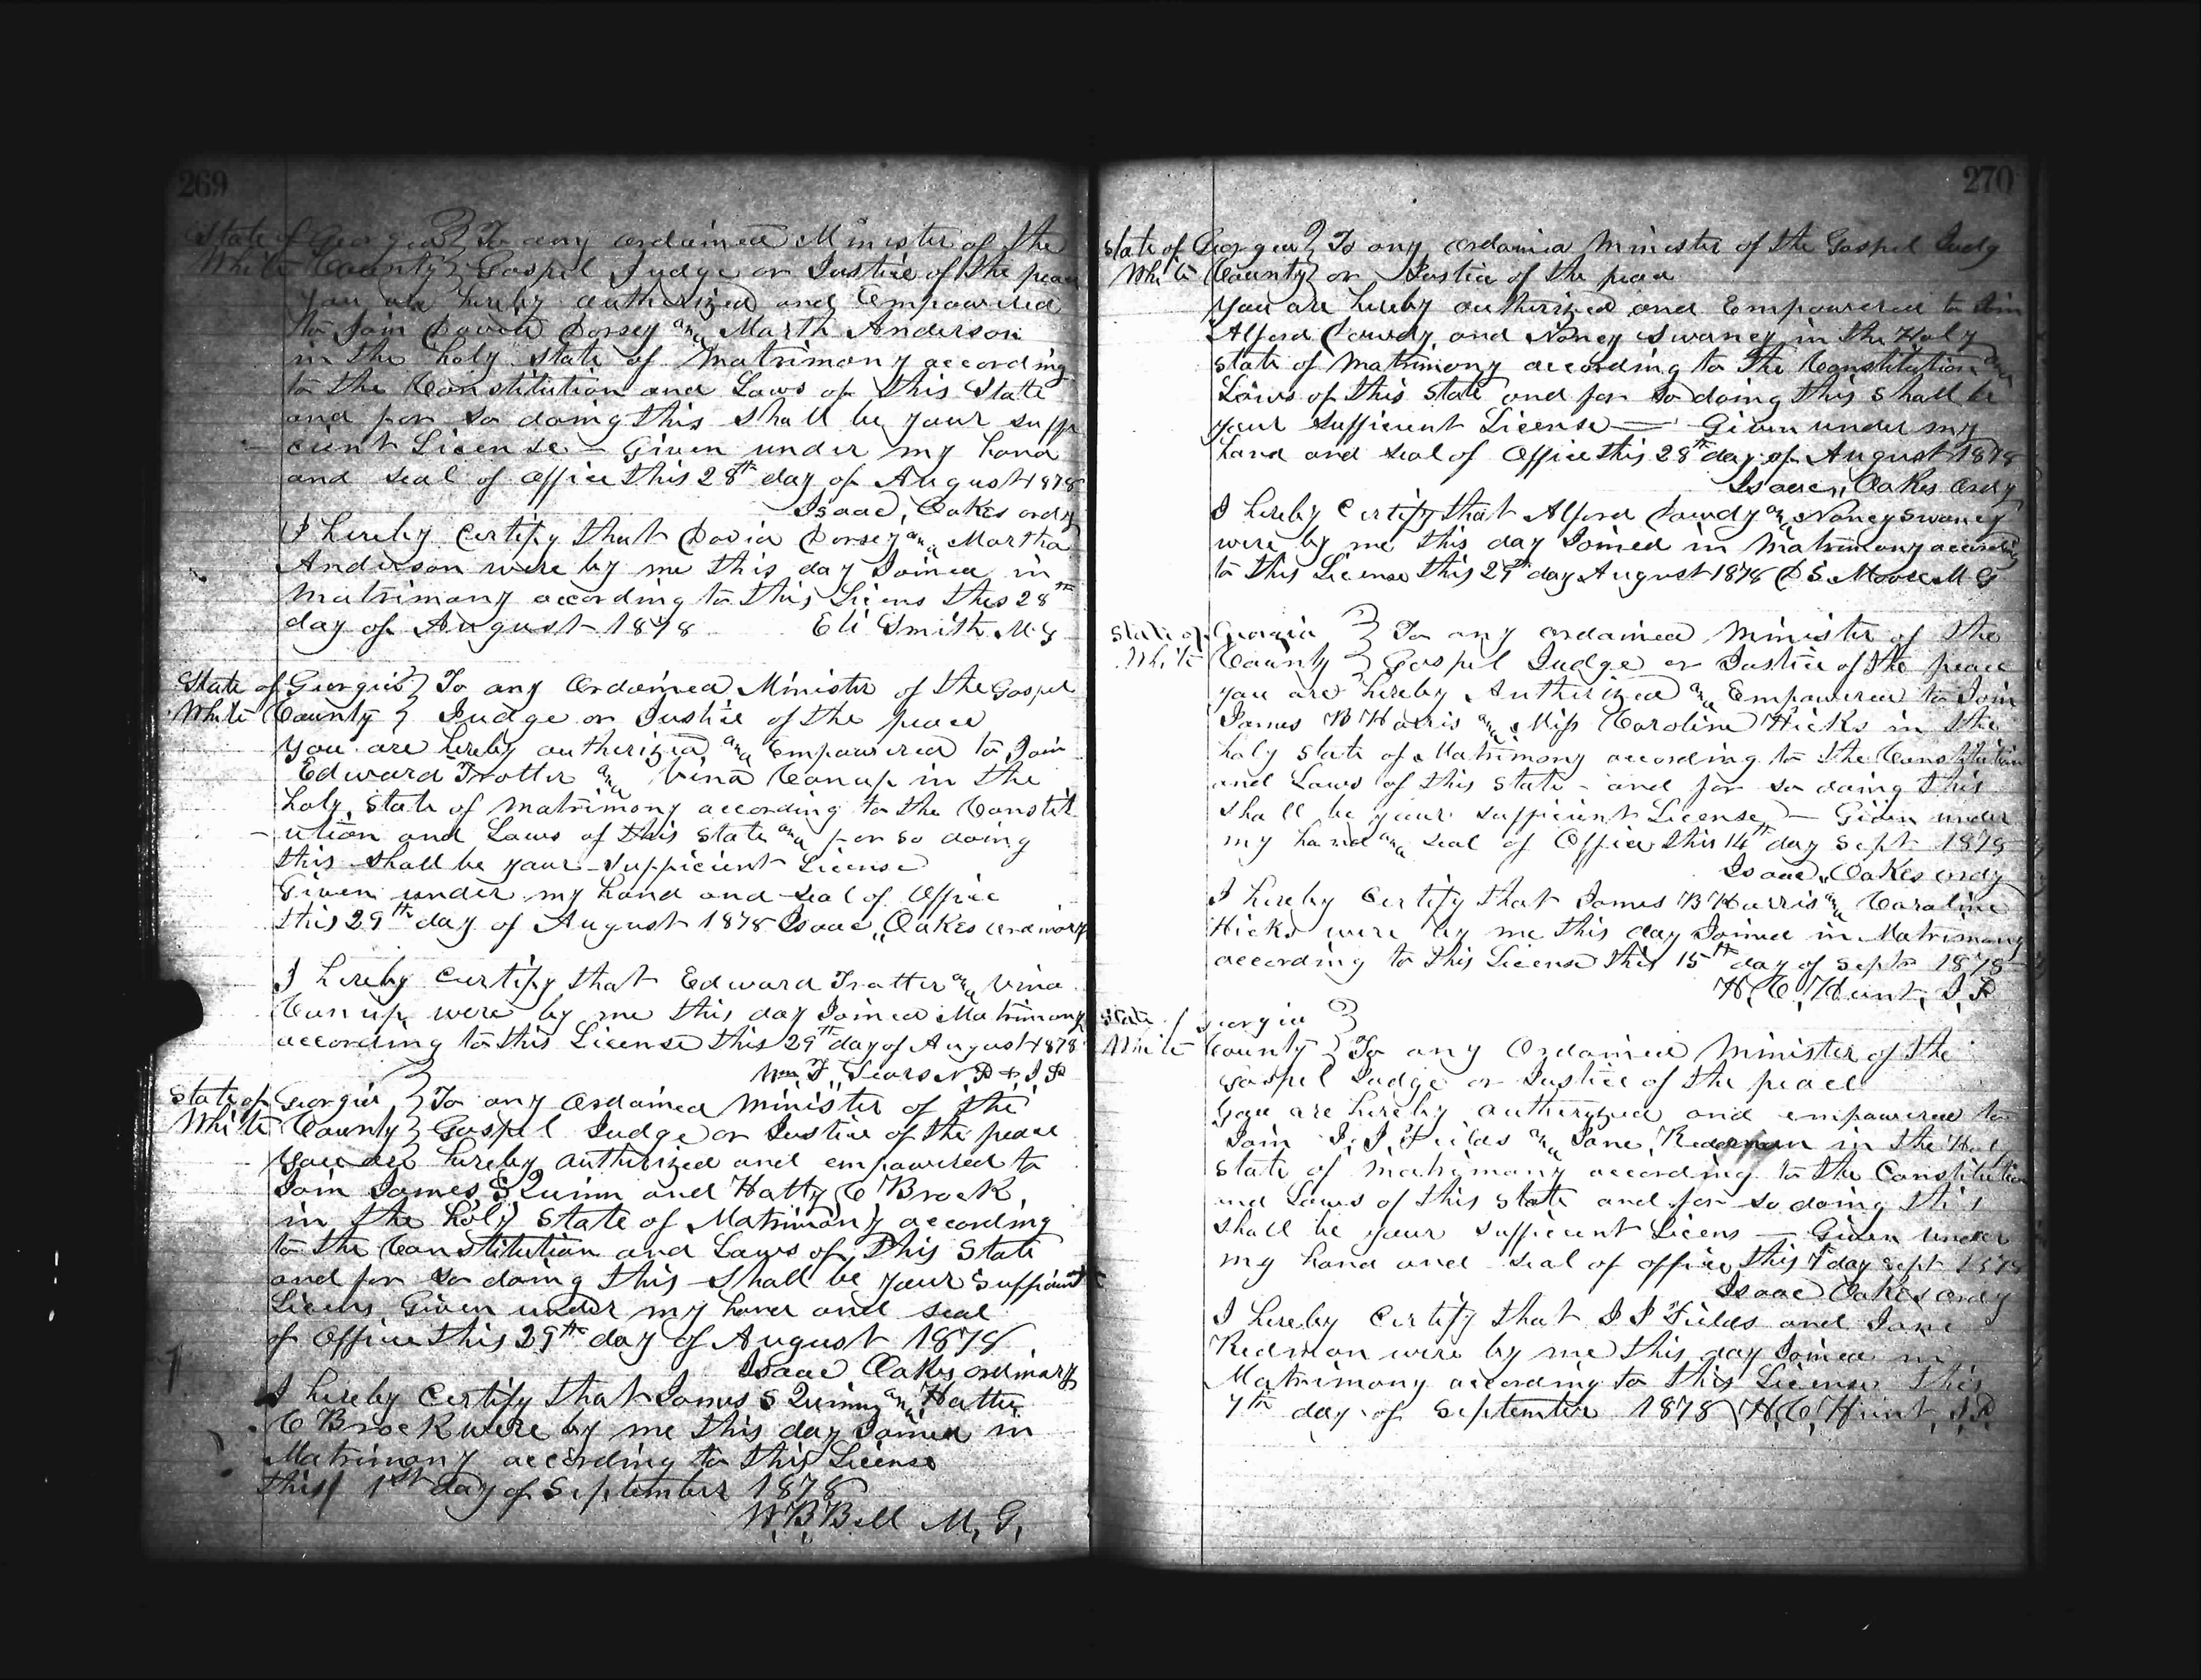 269
State of Georgia } To any ordained Minister of the
White County } Gospel Judge or Justice of the peace
You are hereby authorized and Empowered
to Join David Dorsey and Marth Anderson
in the holy state of Matrimony according
to the Constitution and Laws of this State
and for so doing this shall be your suffi
cient License - Given under my hand
and seal of office this 28th day of August 1878
Isaac, Oakes ordy
I hereby Certify that David Dorsey and Martha
Anderson were by me this day Joined in
Matrimony according to this Licens this 28th
day of August 1878 Eli Smith M. G
State of Georgia } To any Ordained Minister of the Gospel
White County } Judge or Justice of the peace
You are hereby authorized and Empowered to Join
Edward Trotter and Vina Canup in the
holy State of Matrimony according to the Constit
- ution and Laws of this State and for so doing
this shall be your sufficient License
Given under my hand and seal of Office
this 29th day of August 1878 Isaac,, Oakes ordinary
I hereby Certify that Edward Trotter and Vina
Canup were by me this day Joined Matrimony
according to this License this 29th day of August 1878
Wm F, Sears N. P & J, P
State of Georgia } To any Ordained Minister of the
White County } Gospel Judge or Justice of the peace
You are hereby authorized and empowered to
Join James S Quinn and Hatty C Brock,
in the holy State of Matrimony according
to the Constitution and Laws of this State
and for so doing this shall be your sufficient
Licens Given under my hand and seal
of Office this 29th day of August 1878
Isaac Oakes ordinary
I hereby Certify that James S Quinn and Hattie
C Brock were by me this day Joined in
Matrimony according to this License
this 1st day of September 1878
W, B, Bell M, G,
270
State of Georgia } To any ordained Minister of the Gospel Judg
White County } or Justice of the peace
You are hereby authorized and Empowered to Join
Alford Dowdy, and Nancy Swaney in the Holy
state of Matrimony according to the Constitution and
Laws of this State and for so doing this shall be
your sufficient License — Given under my
hand and seal of Office this 28th day of August 1878
Isaac,, Oakes Ordy
I hereby Certify that Alford Dowdy and Nancy Swaney
were by me this day Joined in Matrimony according
to this License this 29th day August 1878 D S. Moore M G
State of Georgia } To any ordained Minister of the
White County } Gospel Judge or Justice of the peace
You are hereby Authorized and Empowered to Join
James B Harris and Miss Caroline Hicks in the
holy State of Matrimony according to the Constitution
and Laws of this State - and for so doing this
shall be your sufficient License, - Given under
my hand and seal of Office this 14th day Sept 1878
Isaac,, Oakes ordy
I hereby Certify that James B Harris and Caroline
Hicks were by me this day Joined in Matrimony
according to this License this 15th day of Sept 1878
H, C, Hunt, J, P
State of Georgia }
White County } To any Ordained Minister of the
Gospel Judge or Justice of the peace
You are hereby authorized and empowered to
Join J. J. Fields and Jane Redmon in the Hol
State of Matrimony according to the Constitution
and Laws of this State and for so doing this
shall be your sufficient Licens — Given under
my hand and seal of office this day Sept 1878
Isaac Oakes ordy
I hereby Certify that J J Fields and Jane
Redmon were by me this day Joined in
Matrimony according to this License this
7th day of September 1878 H, C, Hunt, J. P.